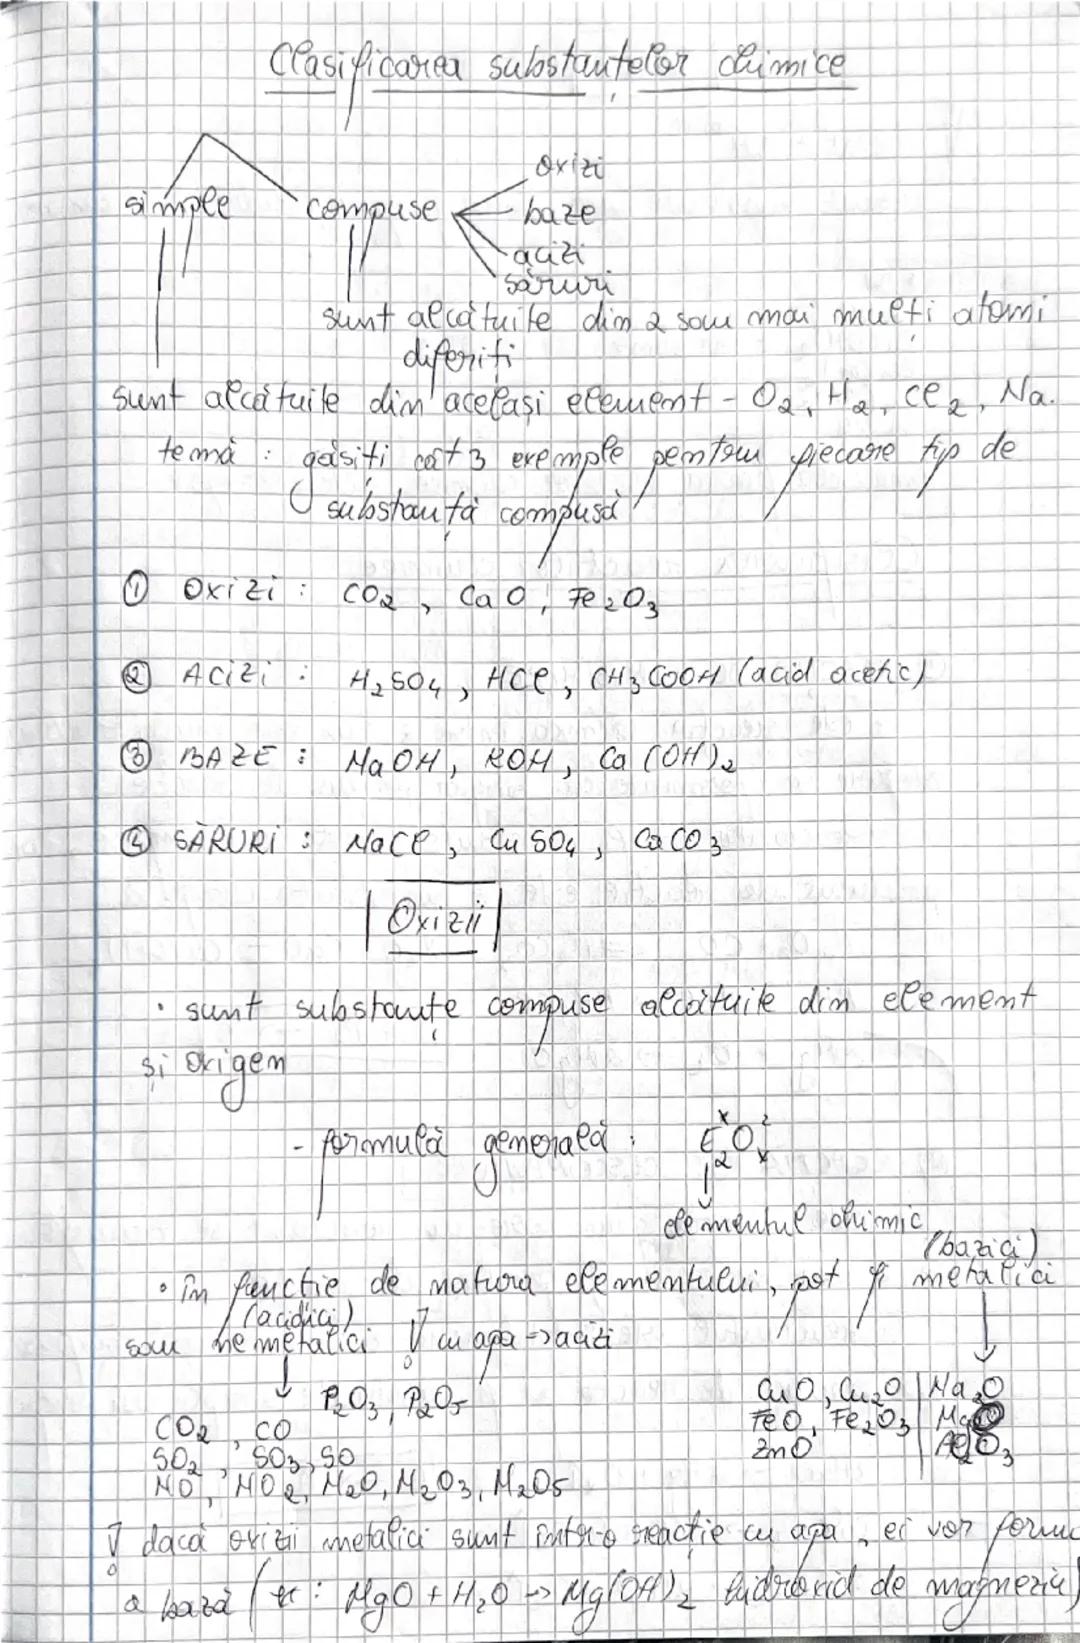 Clasificarea substanțelor chimice
oxizi
simple compuse baze
acizi
săruri
sunt alcătuite din 2 sau mai mulți atomi
diferiți
sunt alcătuite din același element - O₂, H₂, Cl₂, Na.
temă : găsiți cât 3 exemple pentru fiecare tip de
substanță compusă
① Oxizi : CO₂, CaO, Fe₂O₃
② ACIZI : H₂SO₄, HCl, CH₃COOH (acid acetic)
③ BAZE : NaOH, KOH, Ca(OH)₂
④ SĂRURI : NaCl, CuSO₄, CaCO₃
Oxizii
• sunt substanțe compuse alcătuite din element
și oxigen
- formulă generală : E₂ˣOₓ²
elementul chimic
(bazici)
• în funcție de natura elementului, pot fi metalici
(acidici)
sau nemetalici ! cu apa → acizi
P₂O₃, P₂O₅ CuO, Cu₂O | Na₂O
CO₂, CO FeO, Fe₂O₃ | MgO
SO₂, SO₃, SO ZnO | Al₂O₃
NO, NO₂, N₂O, N₂O₃, N₂O₅
! dacă oxizii metalici sunt într-o reacție cu apa, ei vor forma
o bază (ex : MgO + H₂O → Mg(OH)₂ hidroxid de magneziu)